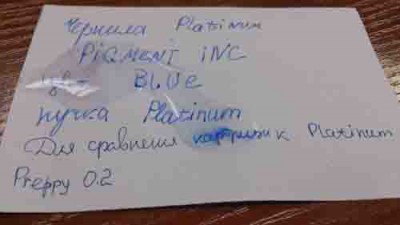 Чернила Platinum
PIGMENT INC
цвет BLUE
ручка Platinum
Для сравнения картридж к Platinum
Preppy 0.2